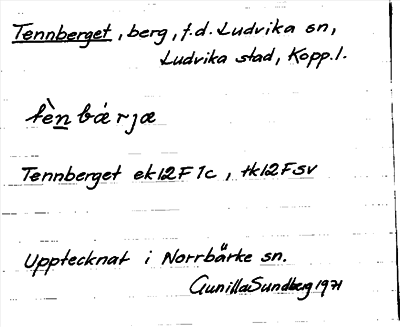 Tennberget, berg, f.d. Ludvika sn,
Ludvika stad, Kopp.l.
tèn bá rjæ
Tennberget ek12F1c, tk12Fsv
Upptecknat i Norrbärke sn.
Gunilla Sundberg 1971